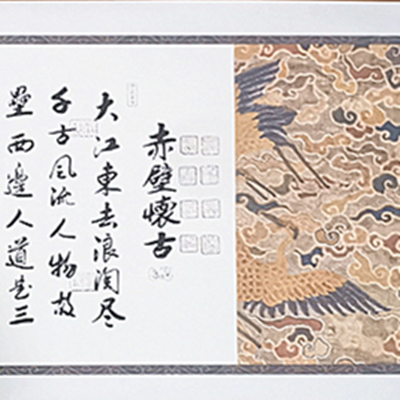 赤壁懷古
大江東去浪淘尽
千古风流人物故
壘西邊人道是三